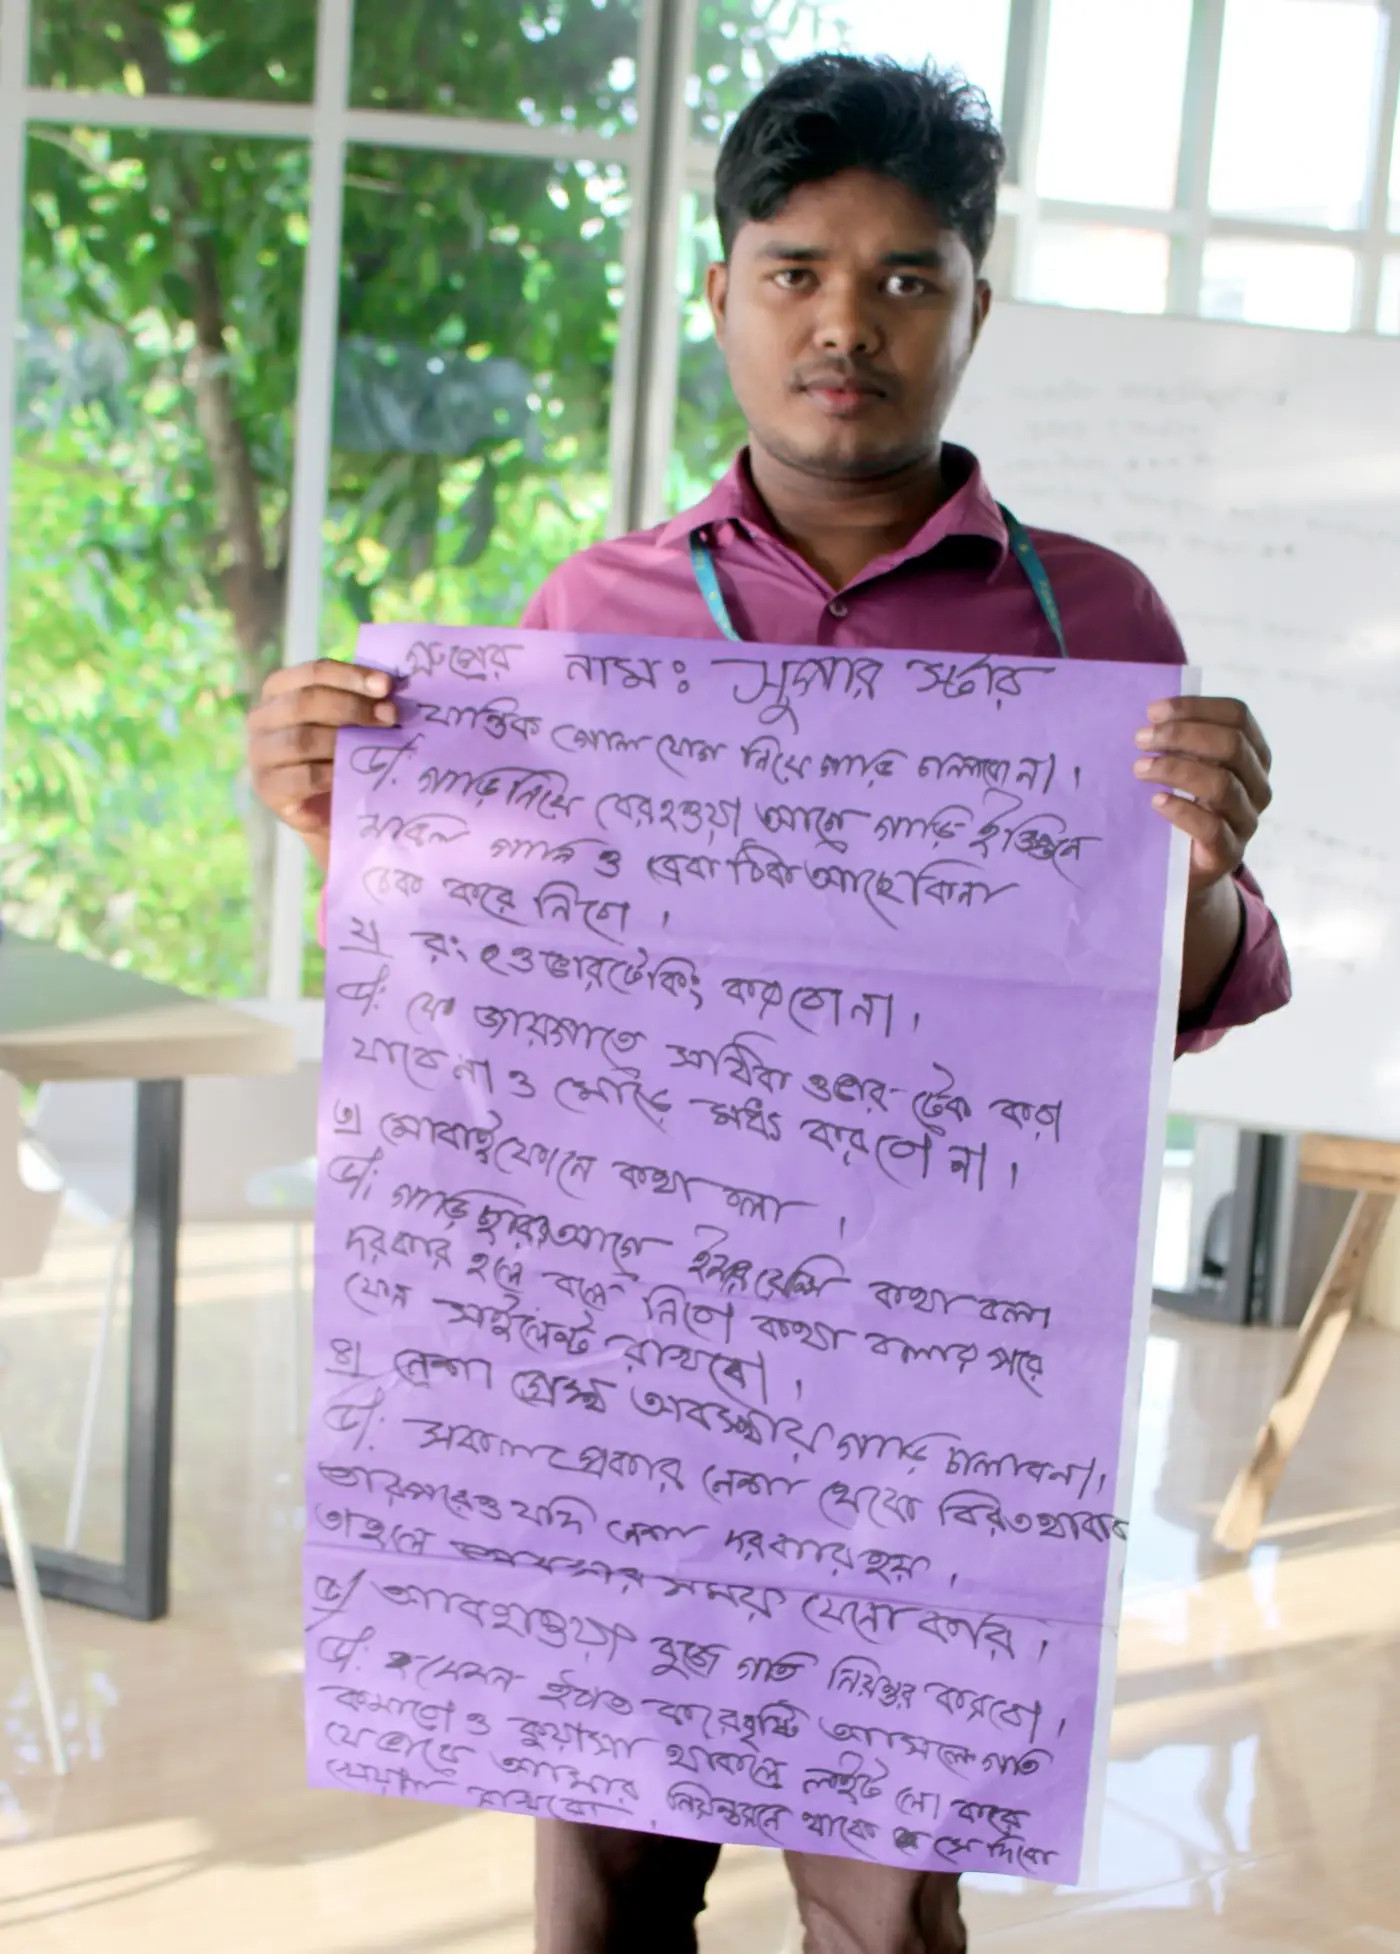 গ্রুপের নাম: সুপার স্টার
যান্ত্রিক গোলযোগ নিয়ে গাড়ি চালাবো না।
উ: গাড়ি নিয়ে বেরহওয়া আগে গাড়ি ইঞ্জিনে
মবিল পানি ও ব্রেক ঠিক আছে কিনা
চেক করে নিবো।
২। রং ওভারটেকিং করবো না।
উ: যে জায়গাতে সঠিক ওভার-টেক করা
যাবে না ও মোড়ে মধ্যে করবো না।
৩। মোবাইফোনে কথা বলা।
উ: গাড়ি ছারার আগে কথা বলা
দরকার হলে বলে নিবো কথা বলার পরে
ফোন সাইলেন্ট রাখবো।
৪। নেশা গ্রেস্থ অবস্থায় গাড়ি চালাবনা।
উ: সকাল প্রকার নেশা থেকে বিরত থাকব
তারপরেও যদি নেশা দরকার হয়।
তাহলে সময় যেনো করি।
৫। আবহাওয়া বুজে গতি নিয়ন্ত্রন করবো।
উ: যেমন হঠাত করে বৃষ্টি আসলে গতি
কমাবো ও কুয়াসা থাকলে লাইট লো করে
যেভাবে আমার নিয়ন্ত্রনে থাকে সে দিকে
খেয়াল রাখবো।